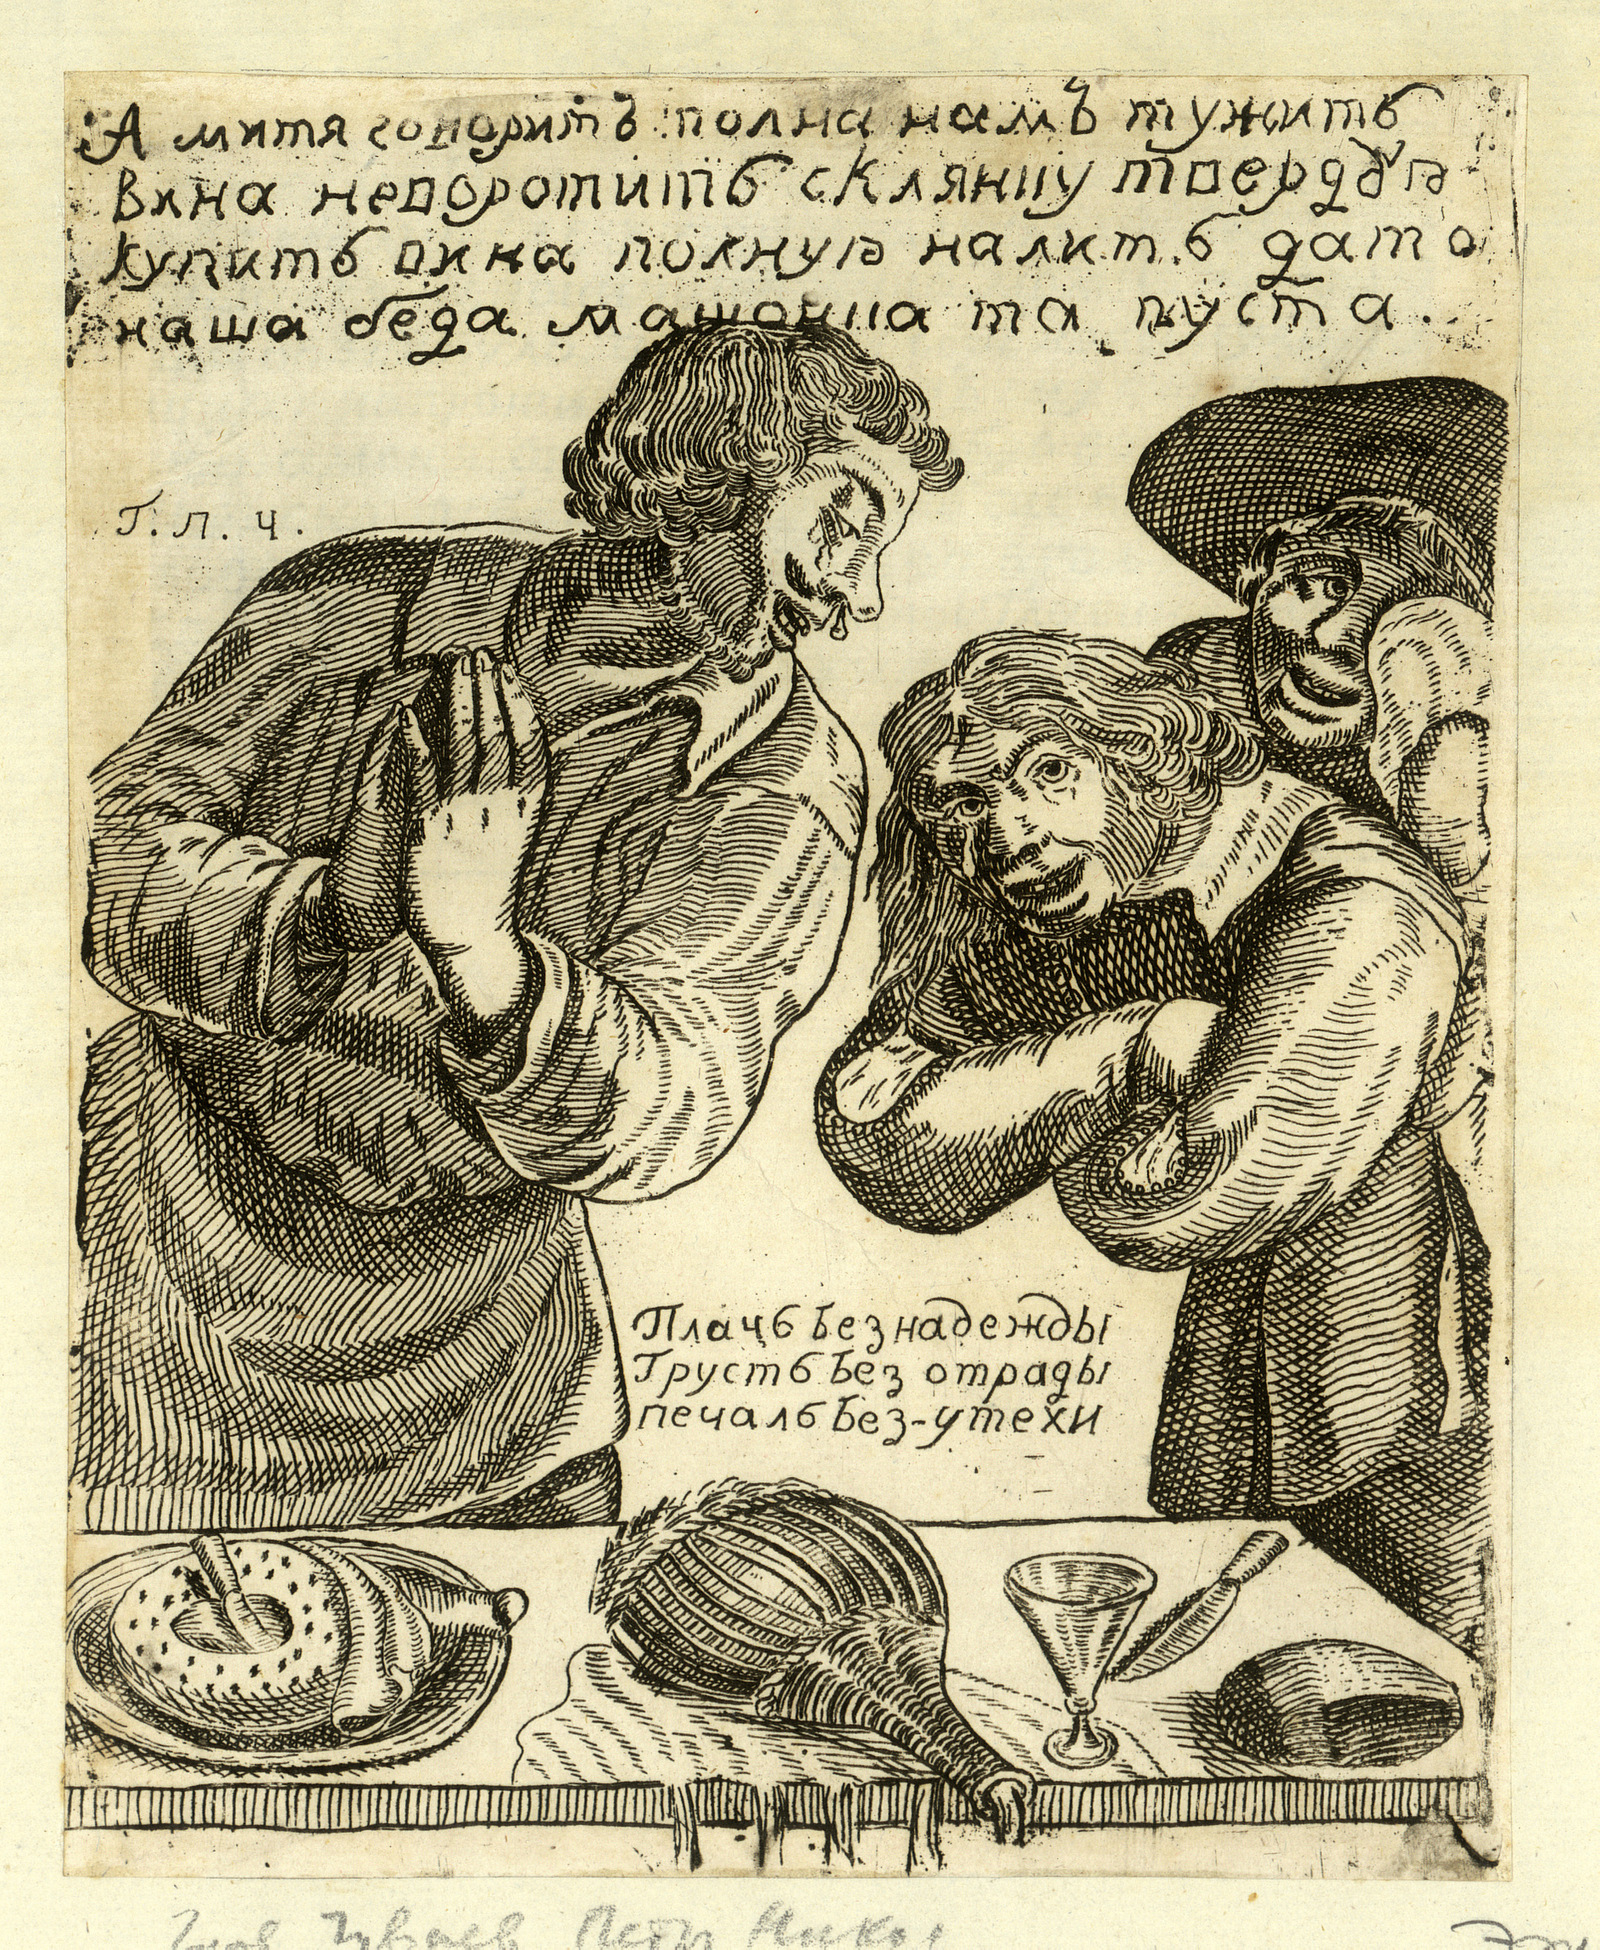 А митя говоритъ полна намъ тужить
вина неворотить скляницу твердꙋю
купить вина полную налить да то
наша беда машонца та пуста.
Г. П. Ч.
Плачь без надежды
Грусть без отрады
печаль без-утехи